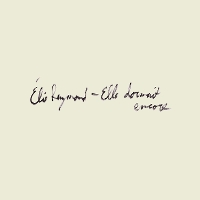 Élie Raymond – Elle dormait
encore